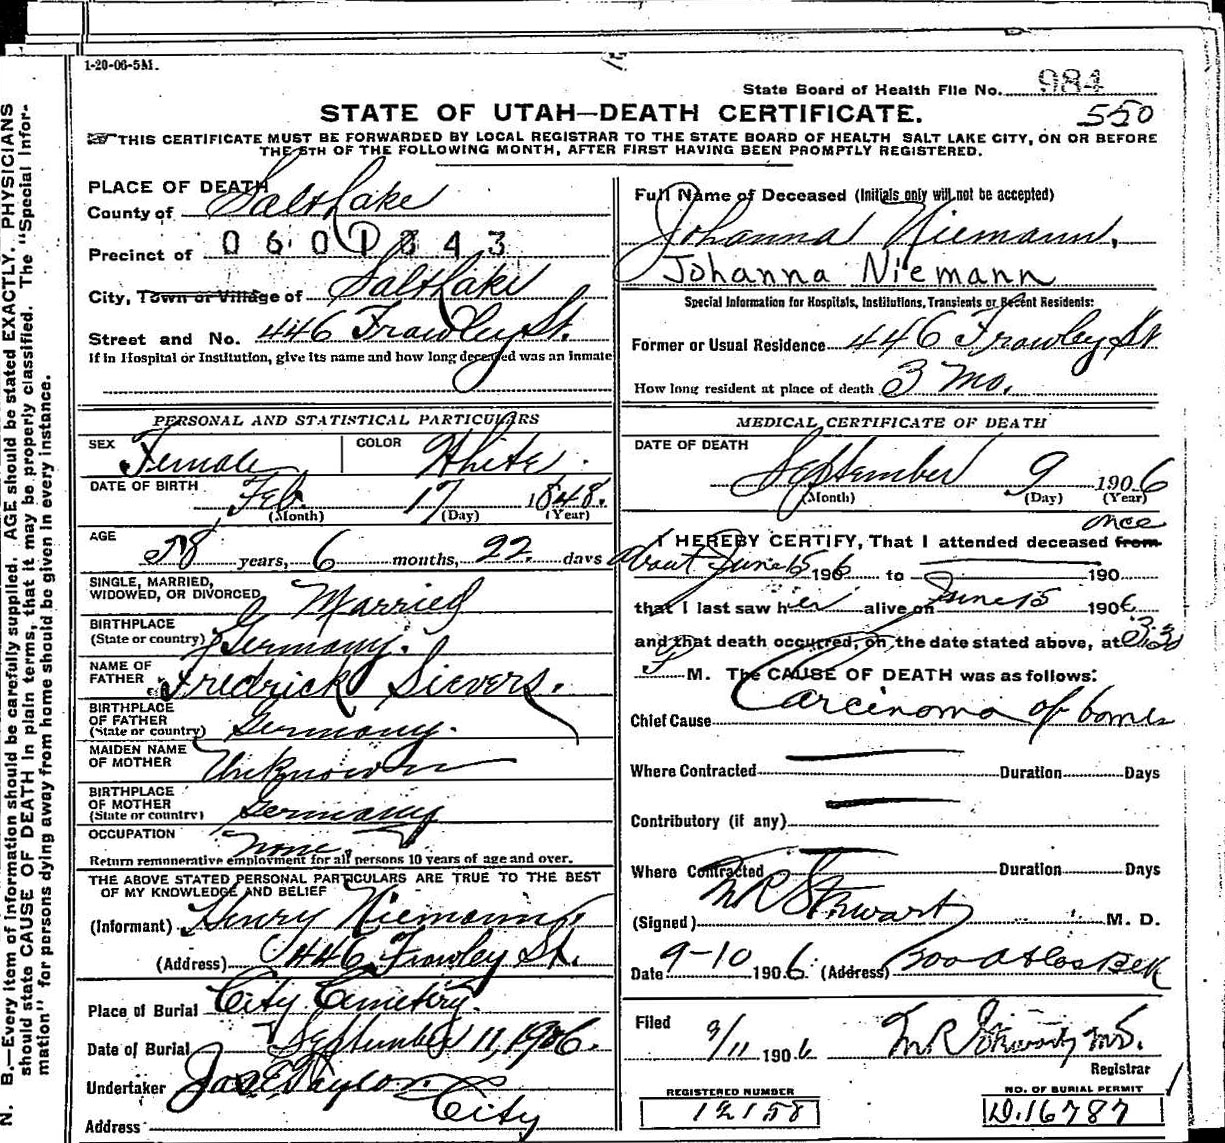 1-20-06-5M.
State Board of Health File No. 984
STATE OF UTAH—DEATH CERTIFICATE. 550
THIS CERTIFICATE MUST BE FORWARDED BY LOCAL REGISTRAR TO THE STATE BOARD OF HEALTH SALT LAKE CITY, ON OR BEFORE
THE 5TH OF THE FOLLOWING MONTH, AFTER FIRST HAVING BEEN PROMPTLY REGISTERED.
PLACE OF DEATH
County of Salt Lake
Precinct of
City, Town or Village of Salt Lake
Street and No. 446 Frawley St.
If in Hospital or Institution, give its name and how long deceased was an inmate
PERSONAL AND STATISTICAL PARTICULARS
SEX Female COLOR White.
DATE OF BIRTH Feb. 17 1848.
(Month) (Day) (Year)
AGE 58 years, 6 months, 22 days
SINGLE, MARRIED,
WIDOWED, OR DIVORCED Married
BIRTHPLACE
(State or country) Germany.
NAME OF
FATHER Fredrick Sievers.
BIRTHPLACE
OF FATHER
(State or country) Germany.
MAIDEN NAME
OF MOTHER Unknown
BIRTHPLACE
OF MOTHER
(State or country) Germany
OCCUPATION None.
Return remunerative employment for all persons 10 years of age and over.
THE ABOVE STATED PERSONAL PARTICULARS ARE TRUE TO THE BEST
OF MY KNOWLEDGE AND BELIEF
(Informant) Henry Niemann
(Address) 446 Frawley St.
Place of Burial City Cemetery.
Date of Burial September 11, 1906.
Undertaker Jos E Taylor
Address City
Full Name of Deceased (Initials only will not be accepted)
Johanna Niemann.
Johanna Niemann
Special Information for Hospitals, Institutions, Transients or Recent Residents:
Former or Usual Residence 446 Frawley St
How long resident at place of death 3 Mo.
MEDICAL CERTIFICATE OF DEATH
DATE OF DEATH
September 9 1906
(Month) (Day) (Year)
once
I HEREBY CERTIFY, That I attended deceased from
about June 15 1906 to 190
that I last saw her alive on June 15 1906
and that death occurred, on the date stated above, at 3:30
M. The CAUSE OF DEATH was as follows:
Chief Cause Carcinoma of
Where Contracted Duration Days
Contributory (if any)
Where Contracted Duration Days
(Signed) M R Stewart M. D.
Date 9-10 1906 (Address)
Filed 9/11 1906 M R Stewart M.D.
Registrar
REGISTERED NUMBER
12158
NO. OF BURIAL PERMIT
D.16787
N. B.—Every item of information should be carefully supplied. AGE should be stated EXACTLY. PHYSICIANS
should state CAUSE OF DEATH in plain terms, that it may be properly classified. The "Special Infor-
mation" for persons dying away from home should be given in every instance.